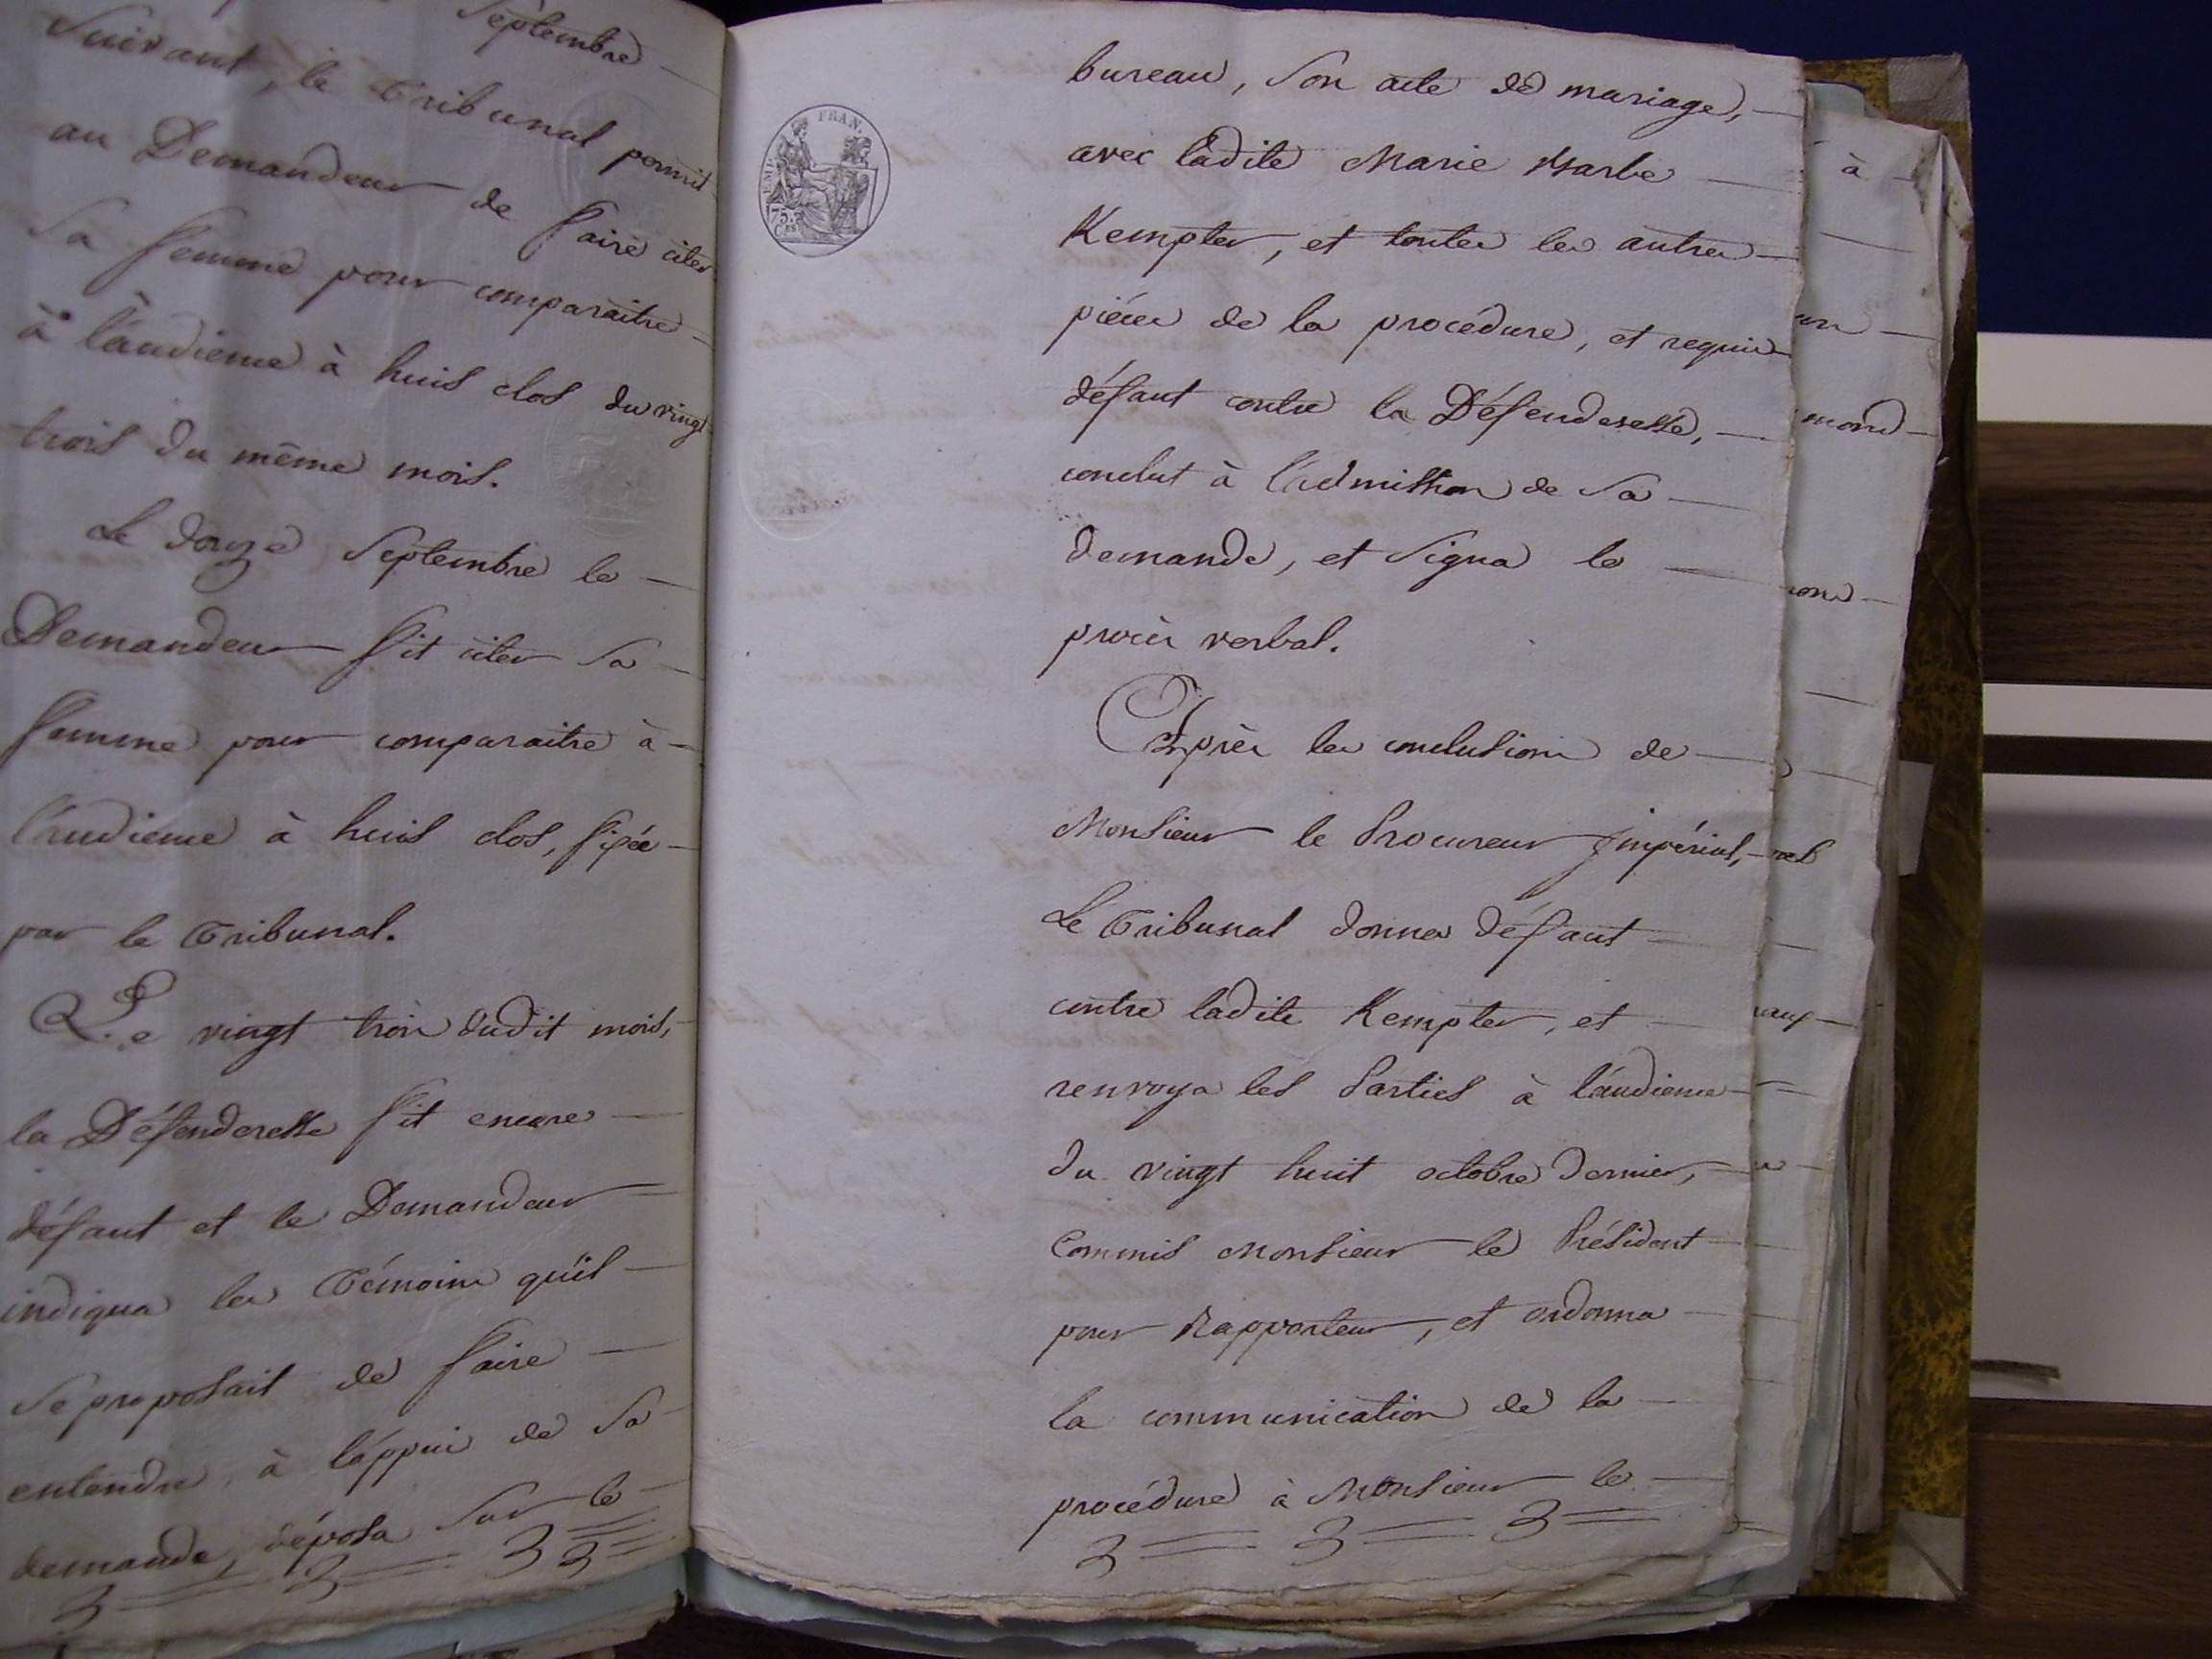 Septembre
suivant, le Tribunal permit
au Demandeur de faire citer
sa femme pour comparaitre
à l'audience à huis clos du vingt
trois du même mois.
Le douze Septembre le
Demandeur fit citer sa
femme pour comparaitre à
l'audience à huis clos, fixée
par le Tribunal.
Le vingt trois dudit mois,
la Défenderesse fit encore
défaut et le Demandeur
indiqua les Témoins qu'il
se proposait de faire
entendre à l'appui de sa
demande, déposa sur le
EMP. FRAN.
75. Ces
bureau, son acte de mariage,
avec ladite Marie Barbe
Kempter, et toutes les autres
piéces de la procédure, et requit
défaut contre la Défenderesse,
conclut à l'admission de sa
demande, et signa le
procès verbal.
Après les conclusions de
Monsieur le Procureur Impérial,
Le Tribunal donna défaut
contre ladite Kempter, et
renvoya les Parties à l'audience
du vingt huit octobre dernier,
Commis Monsieur le Président
pour Rapporteur, et ordonna
la communication de la
procédure à Monsieur le
à